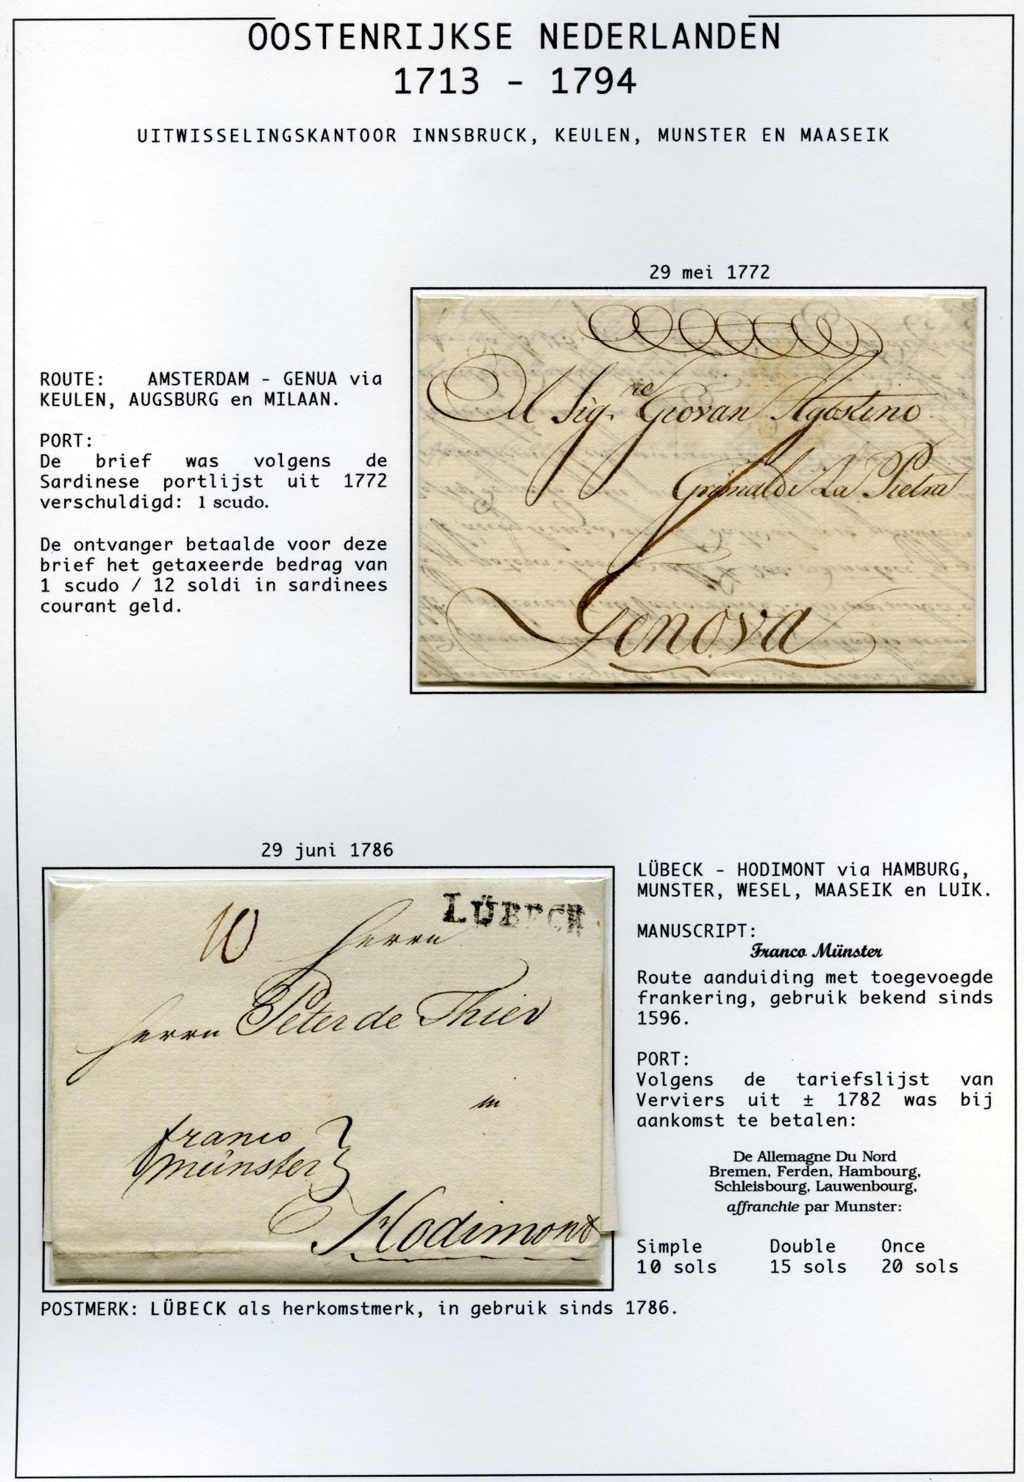 OOSTENRIJKSE NEDERLANDEN
1713 - 1794
UITWISSELINGSKANTOOR INNSBRUCK, KEULEN, MUNSTER EN MAASEIK
29 mei 1772
ROUTE: AMSTERDAM - GENUA via
KEULEN, AUGSBURG en MILAAN.
PORT:
De brief was volgens de
Sardinese portlijst uit 1772
verschuldigd: 1 scudo.
De ontvanger betaalde voor deze
brief het getaxeerde bedrag van
1 scudo / 12 soldi in sardinees
courant geld.
Al Sig.re Giovan Agostino
Grimaldi La Pietra
Genova
29 juni 1786
LÜBECK
10
Herrn
Herrn Peter de Thier
in
franco
münster
Hodimont
LÜBECK - HODIMONT via HAMBURG,
MUNSTER, WESEL, MAASEIK en LUIK.
MANUSCRIPT:
Franco Münster
Route aanduiding met toegevoegde
frankering, gebruik bekend sinds
1596.
PORT:
Volgens de tariefslijst van
Verviers uit ± 1782 was bij
aankomst te betalen:
De Allemagne Du Nord
Bremen, Ferden, Hambourg,
Schleisbourg, Lauwenbourg,
affranchie par Munster:
Simple Double Once
10 sols 15 sols 20 sols
POSTMERK: LÜBECK als herkomstmerk, in gebruik sinds 1786.